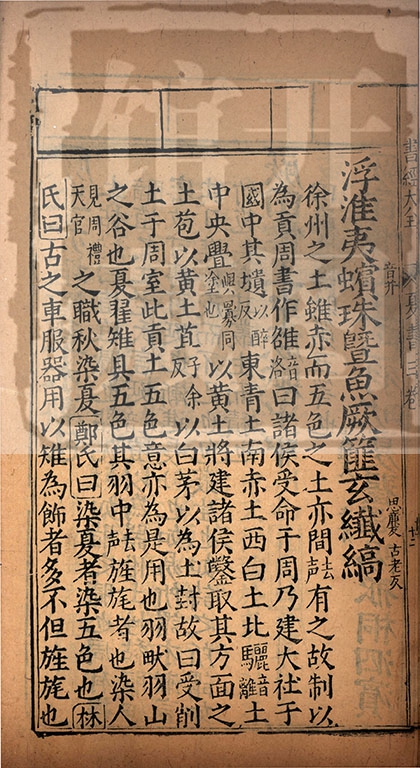 浮淮夷蠙珠暨魚厥篚玄纖縞
徐州之土雖赤而五色之土亦間有之故制以
為貢周書作雒音洛曰諸侯受命于周乃建大社于
國中其壝以醉反東青土南赤土西白土北驪音離土
中央疊與釁同塗也以黄土將建諸侯鑿取其方面之
土苞以黄土苴子余反以白茅以為土封故曰受削
土于周室此貢土五色意亦為是用也羽畎羽山
之谷也夏翟雉具五色其羽中旌旄者也染人
見周禮天官之職秋染夏鄭氏曰染夏者染五色也林
氏曰古之車服器用以雉為飾者多不但旌旄也